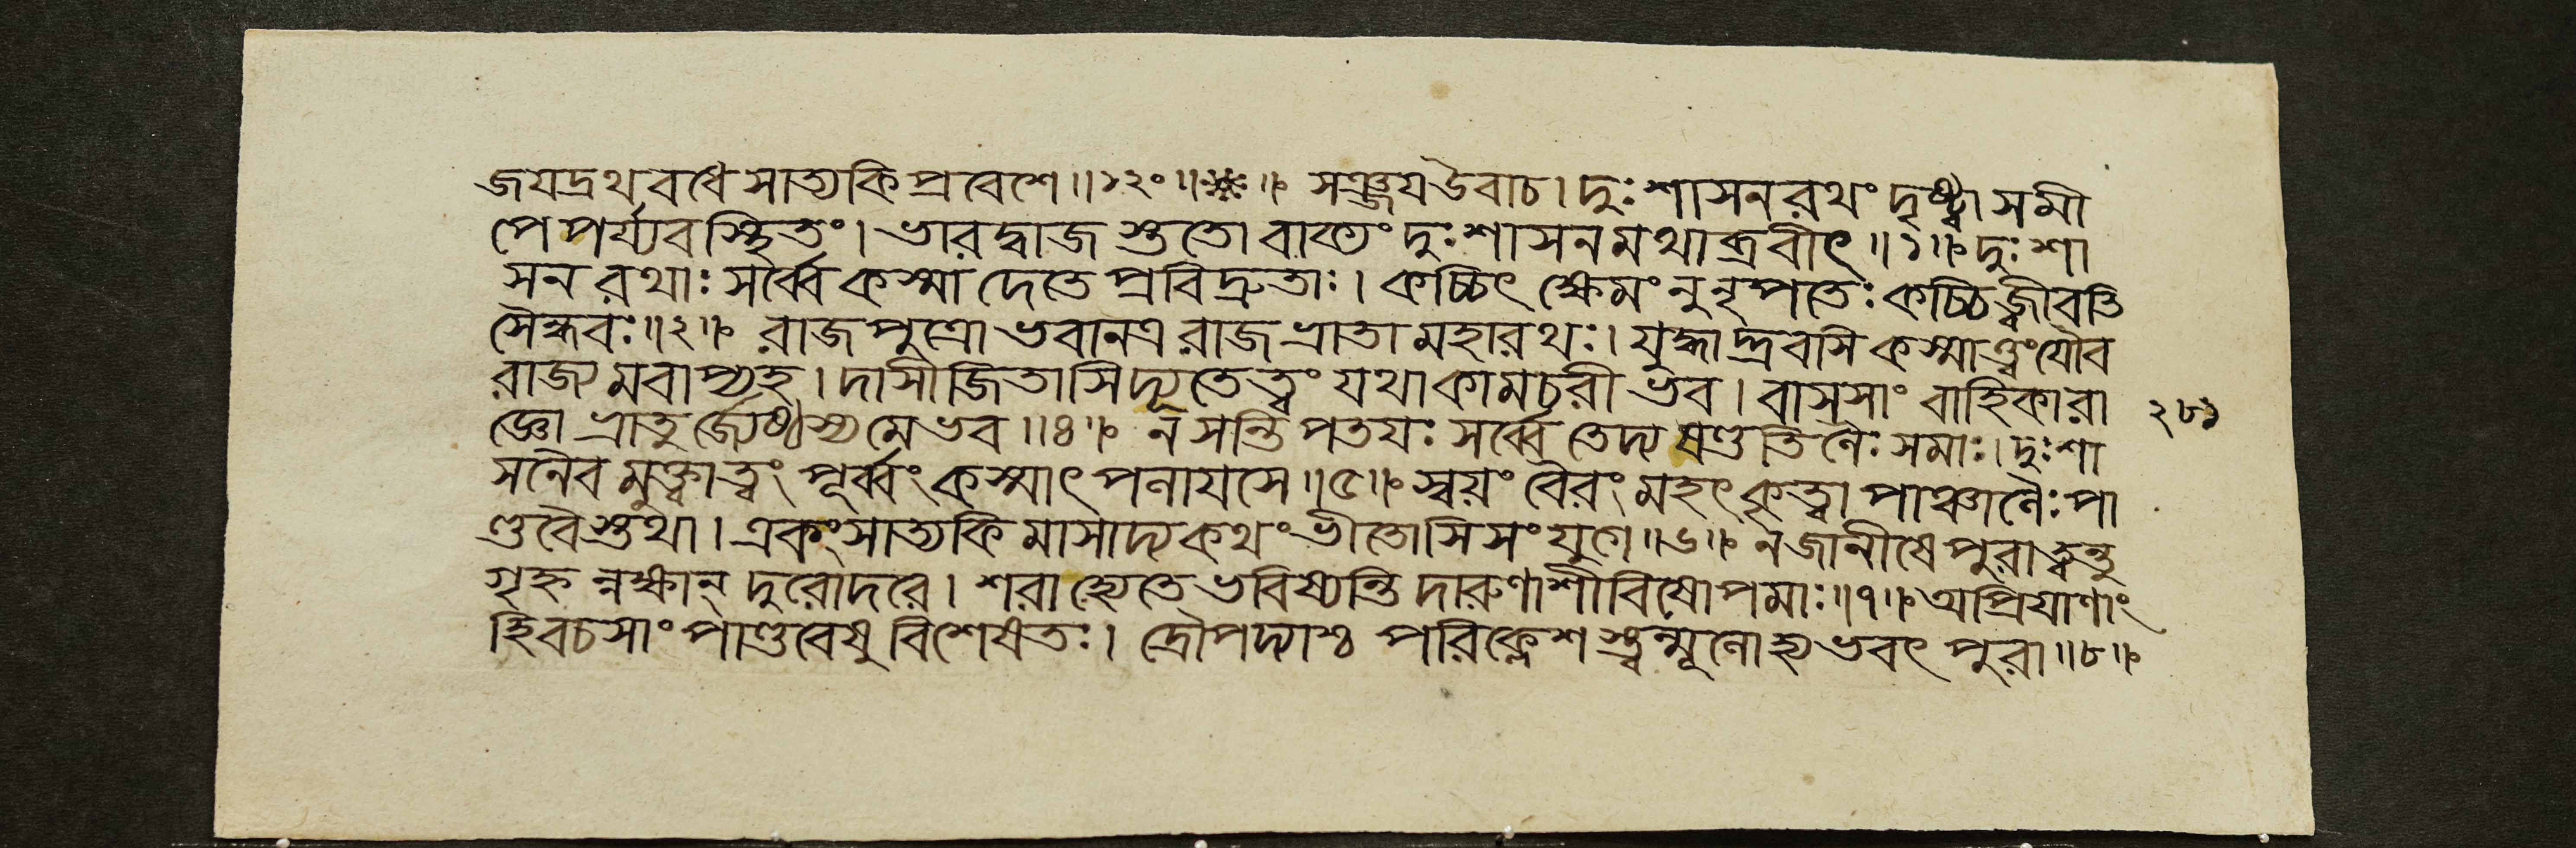 জযদ্রথবধে সাত্যকিপ্রবেশে॥১২০॥※॥ঃ সঞ্জযউবাচ। দুঃশাসনরথং দৃষ্ট্বা সমী
পে পর্য্যবস্থিতং। ভারদ্বাজস্ততো বাক্যং দুঃশাসনমথাব্রবীৎ॥১॥ঃ দুঃশা
সন রথাঃ সর্ব্বে কস্মাদেতে প্রবিদ্রুতাঃ। কচ্চিৎ ক্ষেমং নু নৃপতেঃ কচ্চিজ্জীবতি
সৈন্ধবঃ॥২॥ঃ রাজপুত্রো ভবানত্র রাজভ্রাতা মহারথঃ। যুদ্ধাদ্দ্রবসি কস্মাত্ত্বং যৌব
রাজ্যমবাপ্যহ। দাসী জিতাসি দ্যূতে ত্বং যথাকামচরী ভব। বাসসাং বাহিকা রা
জ্ঞো ভ্রাতুর্জ্যেষ্ঠস্য মে ভব॥৪॥ঃ ন সন্তি পতযঃ সর্ব্বে তেদ্য ষণ্ডতিলৈঃ সমাঃ। দুঃশা
সনৈবমুক্ত্বা ত্বং পূর্ব্বং কস্মাৎ পলাযসে॥৫॥ঃ স্বয়ং বৈরং মহৎ কৃত্বা পাঞ্চালৈঃ পা
ণ্ডবৈস্তথা। একং সাত্যকিমাসাদ্য কথং ভীতোসি সংযুগে॥৬॥ঃ ন জানীষে পুরা ত্বন্তু
গৃহ্ণন্নক্ষান্ দুরোদরে। শরা হ্যেতে ভবিষ্যন্তি দারুণাশীবিষোপমাঃ॥৭॥ঃ অপ্রিযাণাং
হি বচসাং পাণ্ডবেষু বিশেষতঃ। দ্রৌপদ্যাশ্চ পরিক্লেশস্ত্বন্মূলোহ্যভবৎ পুরা॥৮॥ঃ
২৮১